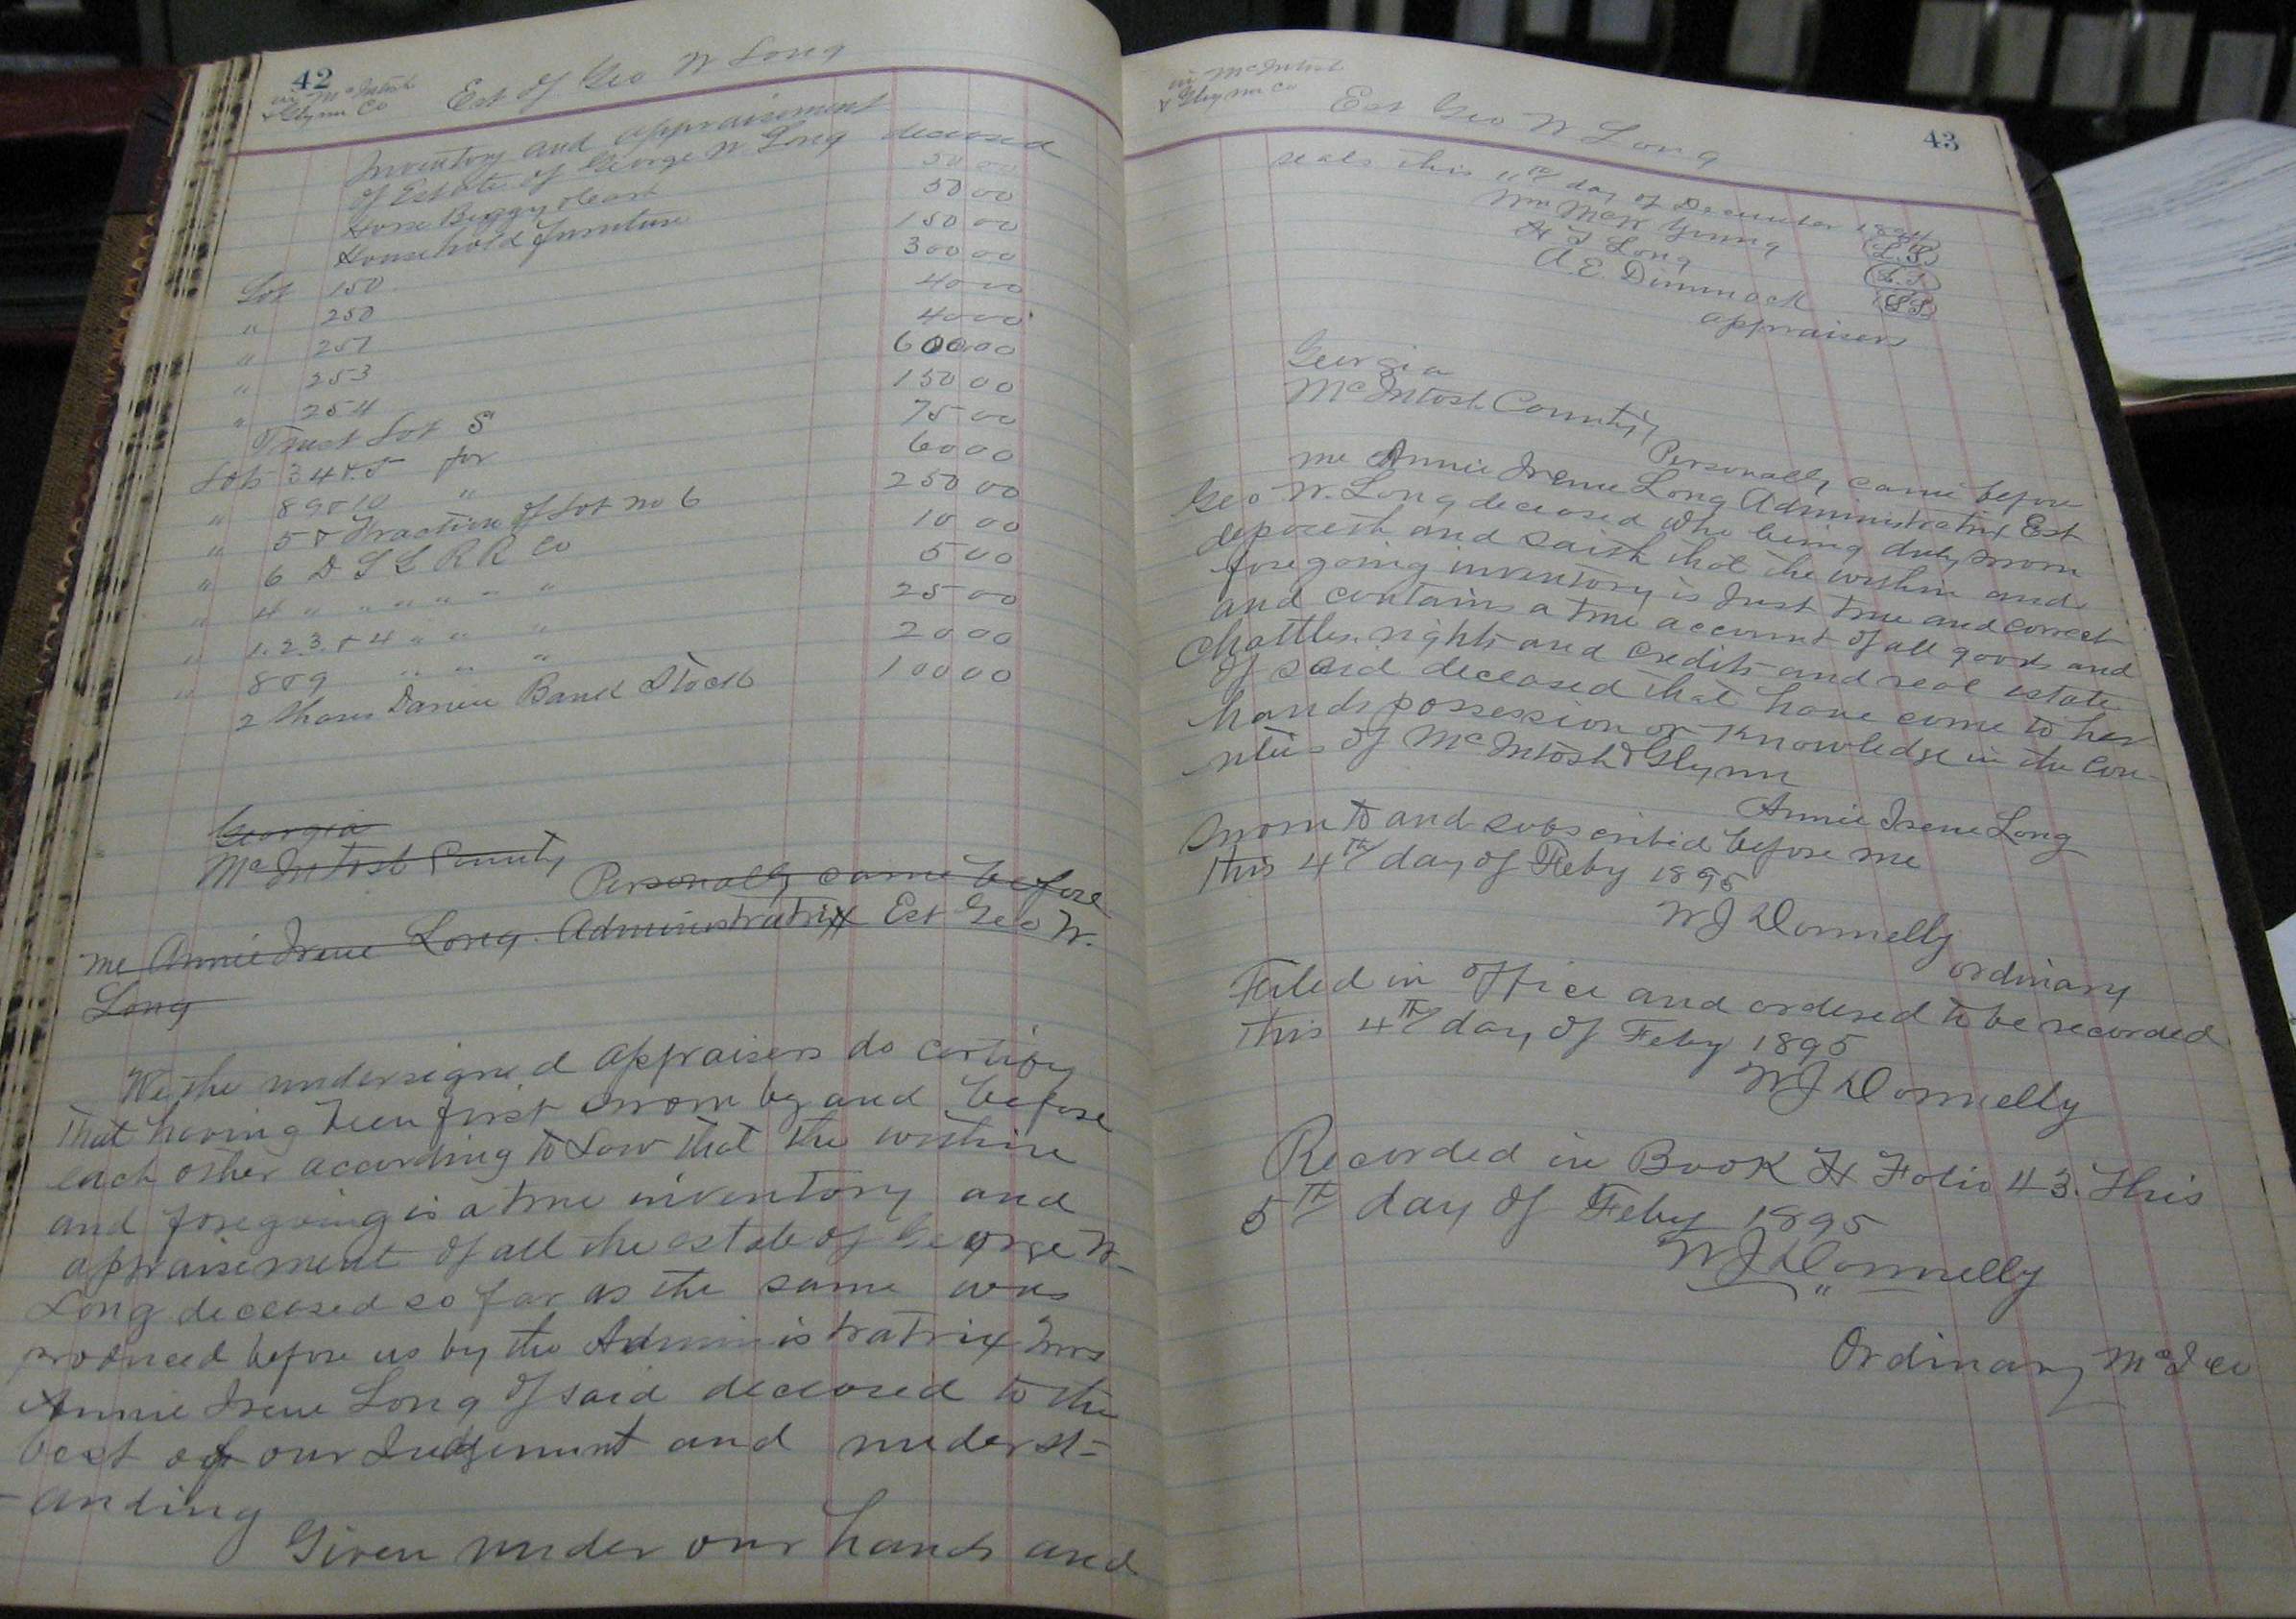 42
in McIntosh
& Glynn Co
Est of Geo W Long
Inventory and appraisement
of Estate of George W. Long deceased
Horse Buggy & 50 00
Household furniture 50 00
Lot 150 150 00
" 250 300 00
" 251 40 00
" 253 40 00
" 254 600 00
Trust Lot S 150 00
Lots 3 4 & 5 for 75 00
" 8 9 & 10 " 60 00
" 5 & Fraction of Lot no 6 250 00
" 6 D S L R R Co 10 00
" 4 " " " " " " 5 00
" 1. 2. 3. & 4 " " " 25 00
" 8 & 9 " " " 20 00
2 Shares Darien Bank Stock 100 00
Georgia
McIntosh County
Personally came before
me Annie Irene Long. Administratrix Est Geo W.
Long
We the undersigned appraisers do certify
that having been first sworn by and before
each other according to Law that the within
and foregoing is a true inventory and
appraisement of all the estate of George W.
Long deceased so far as the same was
produced before us by the Administratrix Mrs
Annie Irene Long of said deceased to the
best of our Judgement and underst=
-anding
Given under our hands and
in McIntosh
& Glynn Co
Est Geo W Long
43
seals this 11th day of December 1894
Wm McW Young L.S.
H T Long L.S.
A. E. Dimmock L.S.
appraisers
Georgia
McIntosh County,
Personally came before
me Annie Irene Long Administratrix Est
Geo W. Long deceased who being duly sworn
deposeth and saith that the within and
foregoing inventory is Just true and correct
and contains a true account of all goods and
Chattles, rights and credits and real estate
of said deceased that have come to her
hands possession or Knowledge in the Cou-
-nties of McIntosh & Glynn
Annie Irene Long
Sworn to and subscribed before me
this 4th day of Feby 1895
W J Donnelly
ordinary
Filed in office and ordered to be recorded
this 4th day of Feby 1895
W J Donnelly
Recorded in Book H Folio 43. This
5th day of Feby 1895
W J Donnelly
"
Ordinary McI Co